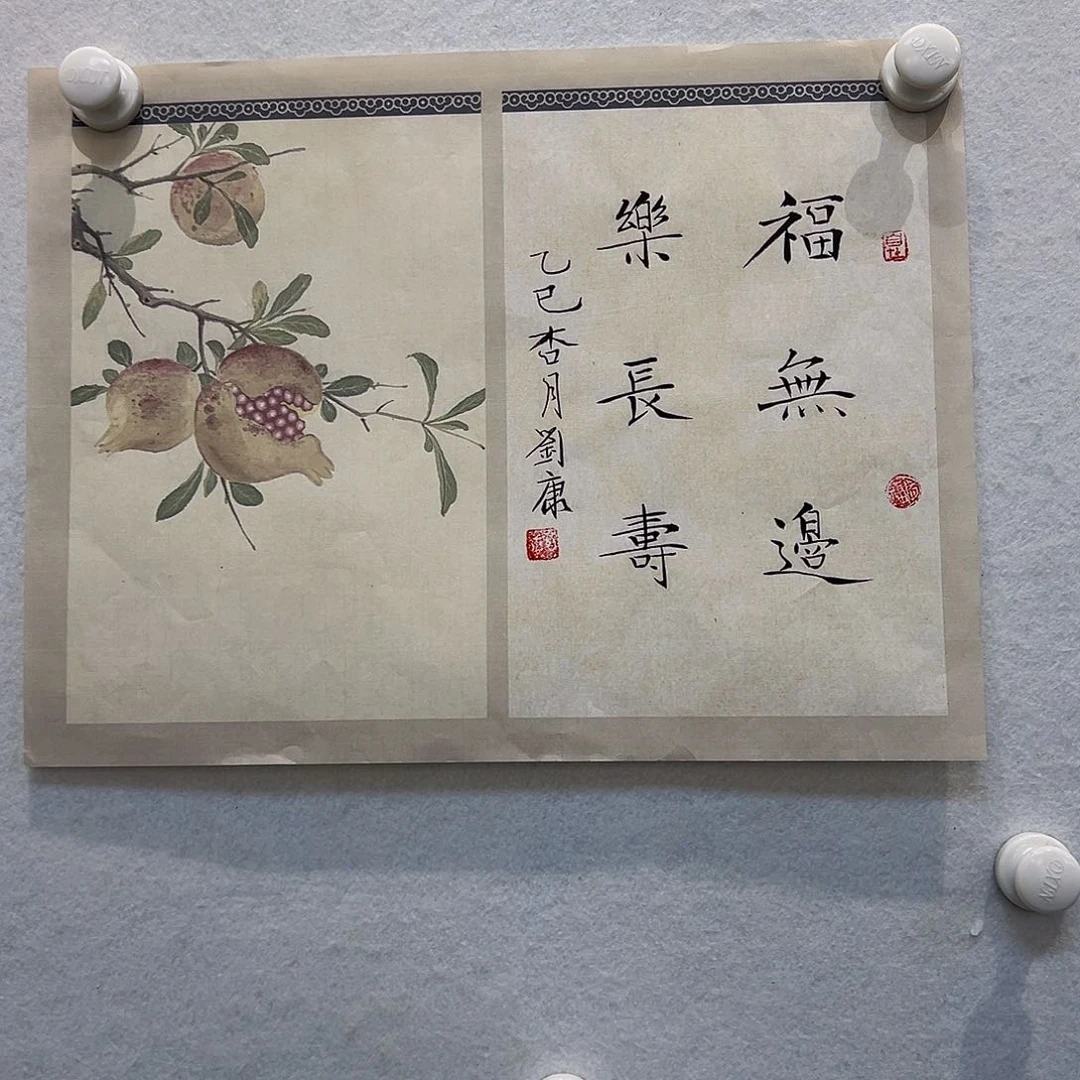 福無邊
樂長壽
乙巳杏月劉康